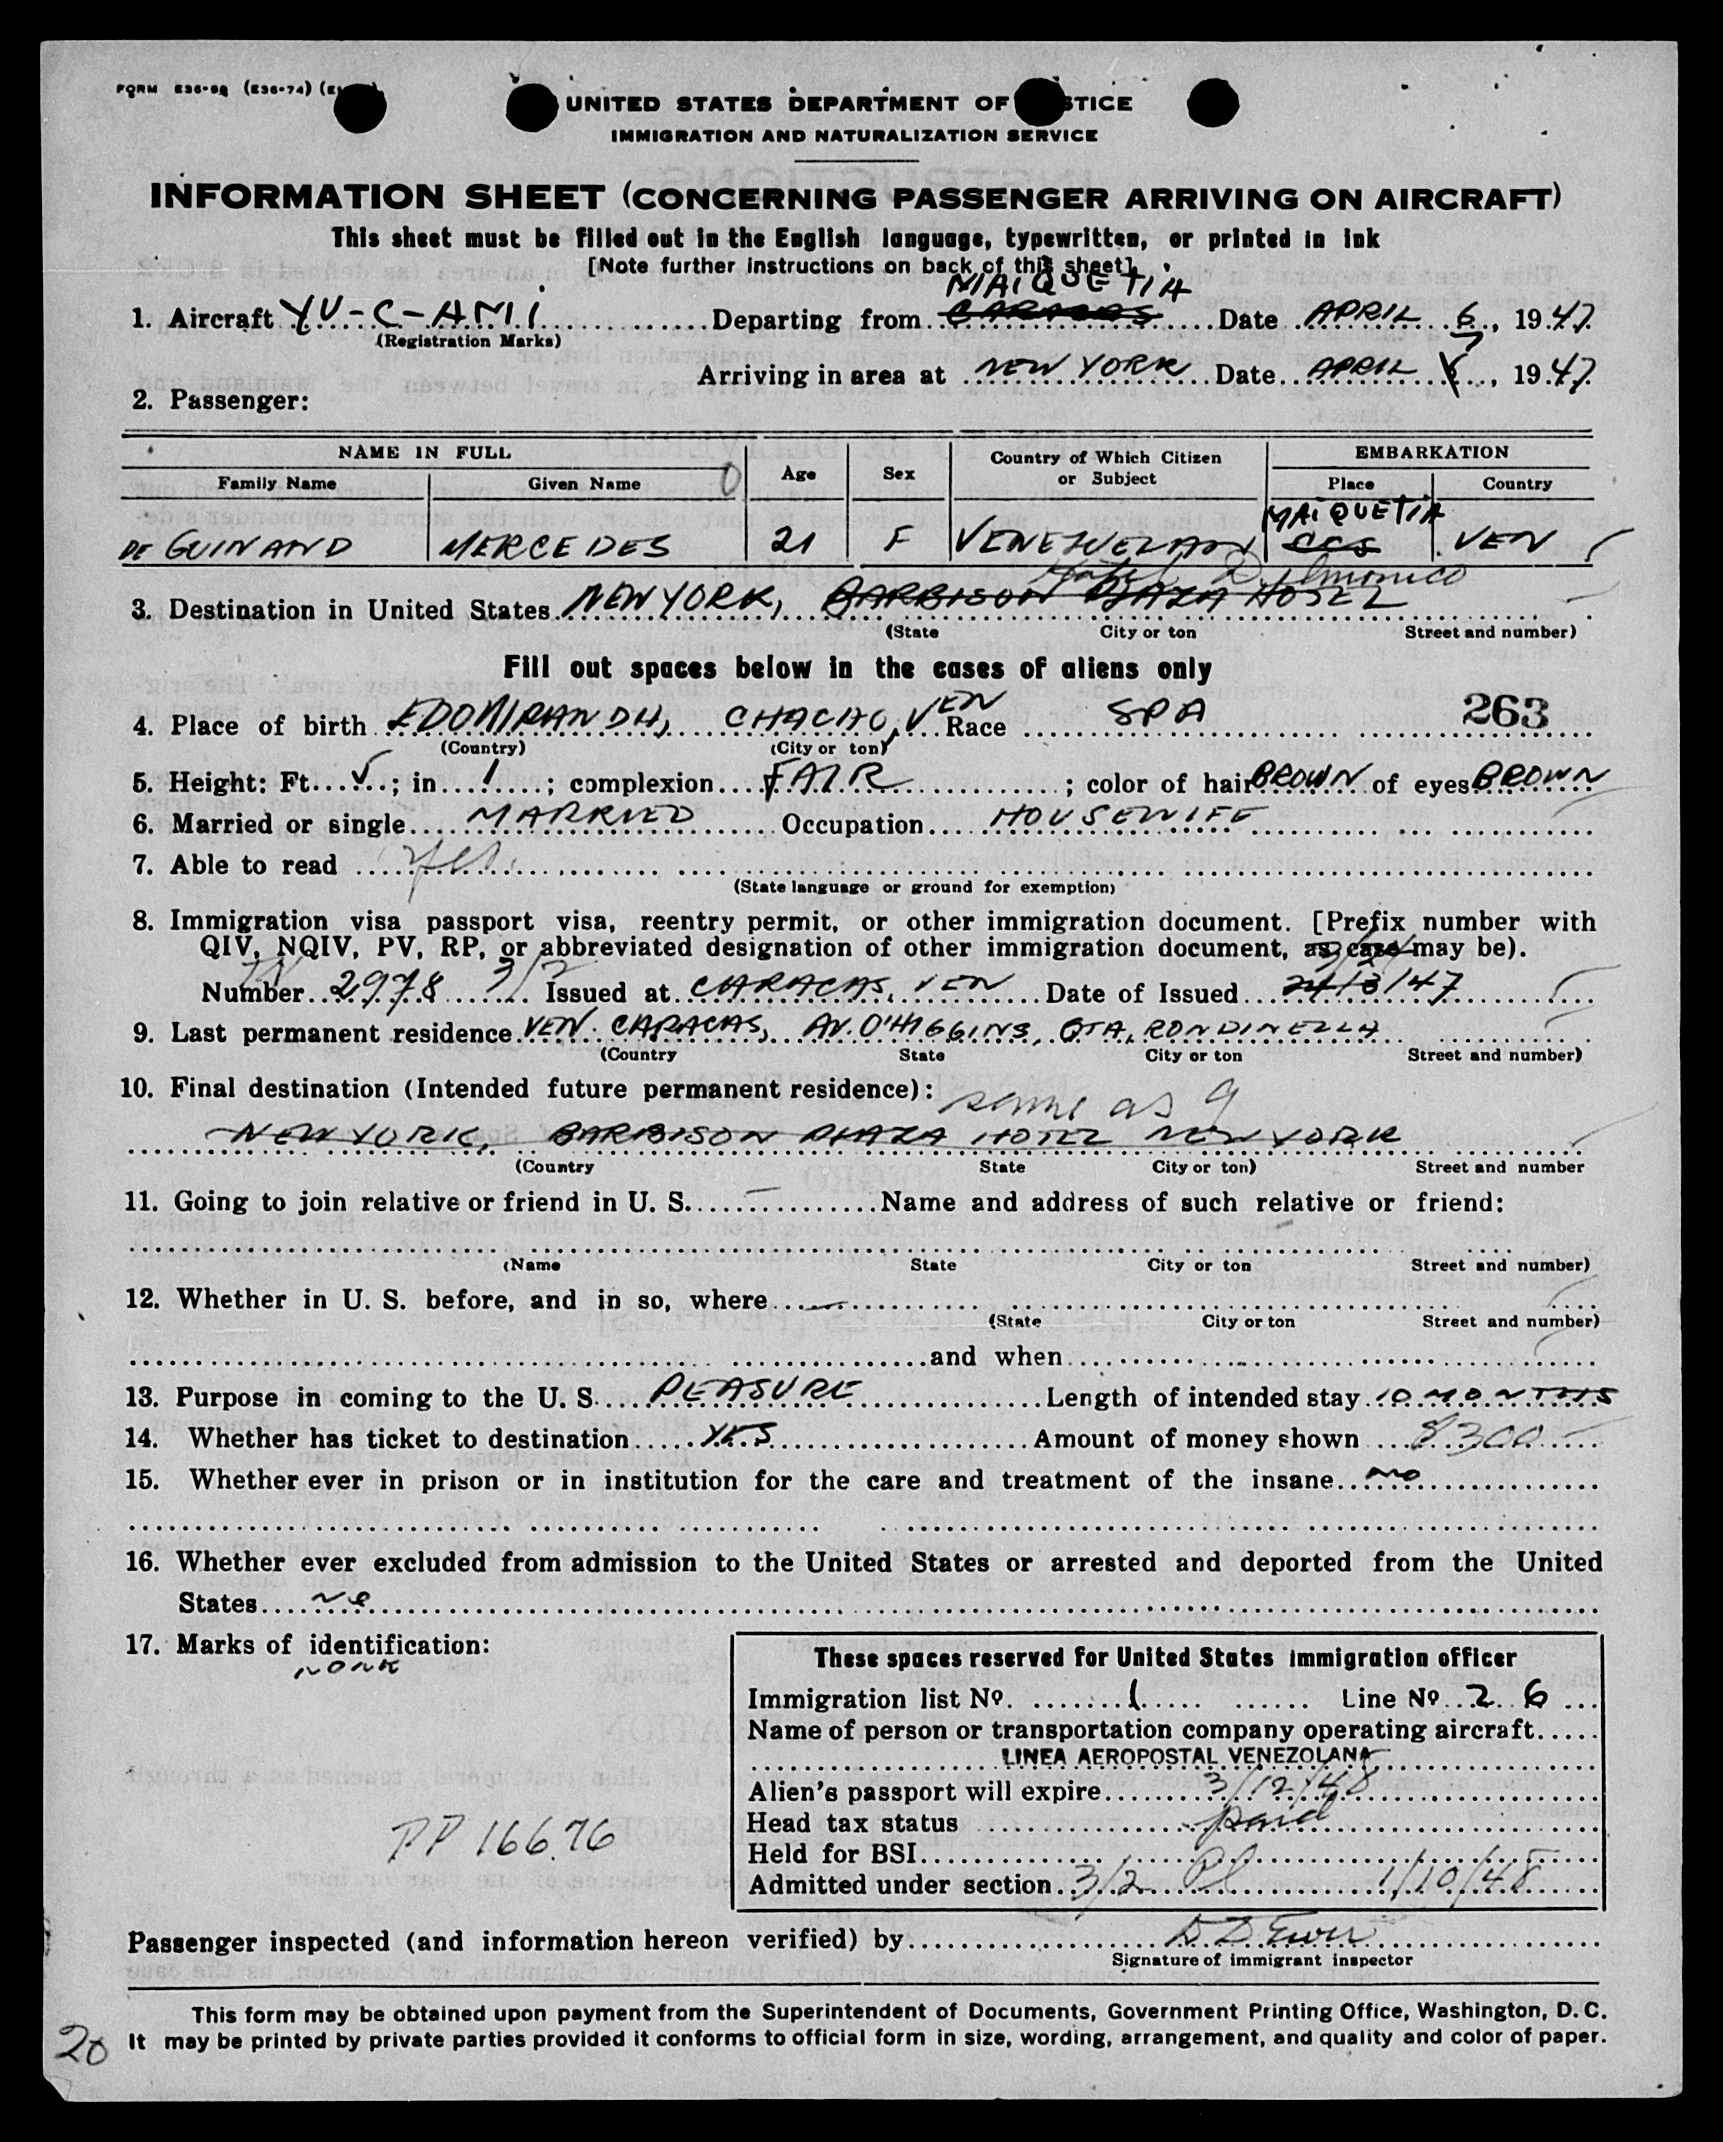 FORM
UNITED STATES DEPARTMENT OF JUSTICE
IMMIGRATION AND NATURALIZATION SERVICE
INFORMATION SHEET (CONCERNING PASSENGER ARRIVING ON AIRCRAFT)
This sheet must be filled out in the English language, typewritten, or printed in ink
[Note further instructions on back of this sheet]
MAIQUETIA
1. Aircraft YV-C-AMI Departing from CARACAS Date APRIL 6, 1947
(Registration Marks)
7
Arriving in area at NEW YORK Date APRIL 6, 1947
2. Passenger:
NAME IN FULL Age Sex Country of Which Citizen or Subject EMBARKATION
Family Name Given Name Place Country
MAIQUETIA
DE GUINAND MERCEDES 21 F VENEZUELAN CCS VEN
Hotel Delmonico
3. Destination in United States NEW YORK, BARBISON PLAZA HOTEL
(State City or ton Street and number)
Fill out spaces below in the cases of aliens only
263
4. Place of birth EDO MIRANDA, CHACAO, VEN Race SPA
(Country) (City or ton)
5. Height: Ft. 5; in 1; complexion FAIR; color of hair BROWN of eyes BROWN
6. Married or single MARRIED Occupation HOUSEWIFE
7. Able to read yes
(State language or ground for exemption)
8. Immigration visa passport visa, reentry permit, or other immigration document. [Prefix number with
QIV, NQIV, PV, RP, or abbreviated designation of other immigration document, as case may be).
Number 2978 3/2 Issued at CARACAS, VEN Date of Issued 24/3/47
9. Last permanent residence VEN. CARACAS, AV. O'HIGGINS, QTA. RONDINELLA
(Country State City or ton Street and number)
10. Final destination (Intended future permanent residence): same as 9
NEW YORK, BARBISON PLAZA HOTEL NEW YORK
(Country State City or ton) Street and number
11. Going to join relative or friend in U. S. — Name and address of such relative or friend:
(Name State City or ton Street and number)
12. Whether in U. S. before, and in so, where —
(State City or ton Street and number)
and when
13. Purpose in coming to the U. S. PLEASURE Length of intended stay 10 MONTHS
14. Whether has ticket to destination YES Amount of money shown $300
15. Whether ever in prison or in institution for the care and treatment of the insane NO
16. Whether ever excluded from admission to the United States or arrested and deported from the United
States NO
17. Marks of identification:
NONE
These spaces reserved for United States immigration officer
Immigration list No. 1 Line No 26
Name of person or transportation company operating aircraft
LINEA AEROPOSTAL VENEZOLANA
Alien's passport will expire 3/12/48
Head tax status paid
PP 16676
Held for BSI
Admitted under section 3/2 Pl 1/10/48
Passenger inspected (and information hereon verified) by
Signature of immigrant inspector
This form may be obtained upon payment from the Superintendent of Documents, Government Printing Office, Washington, D. C.
It may be printed by private parties provided it conforms to official form in size, wording, arrangement, and quality and color of paper.
20